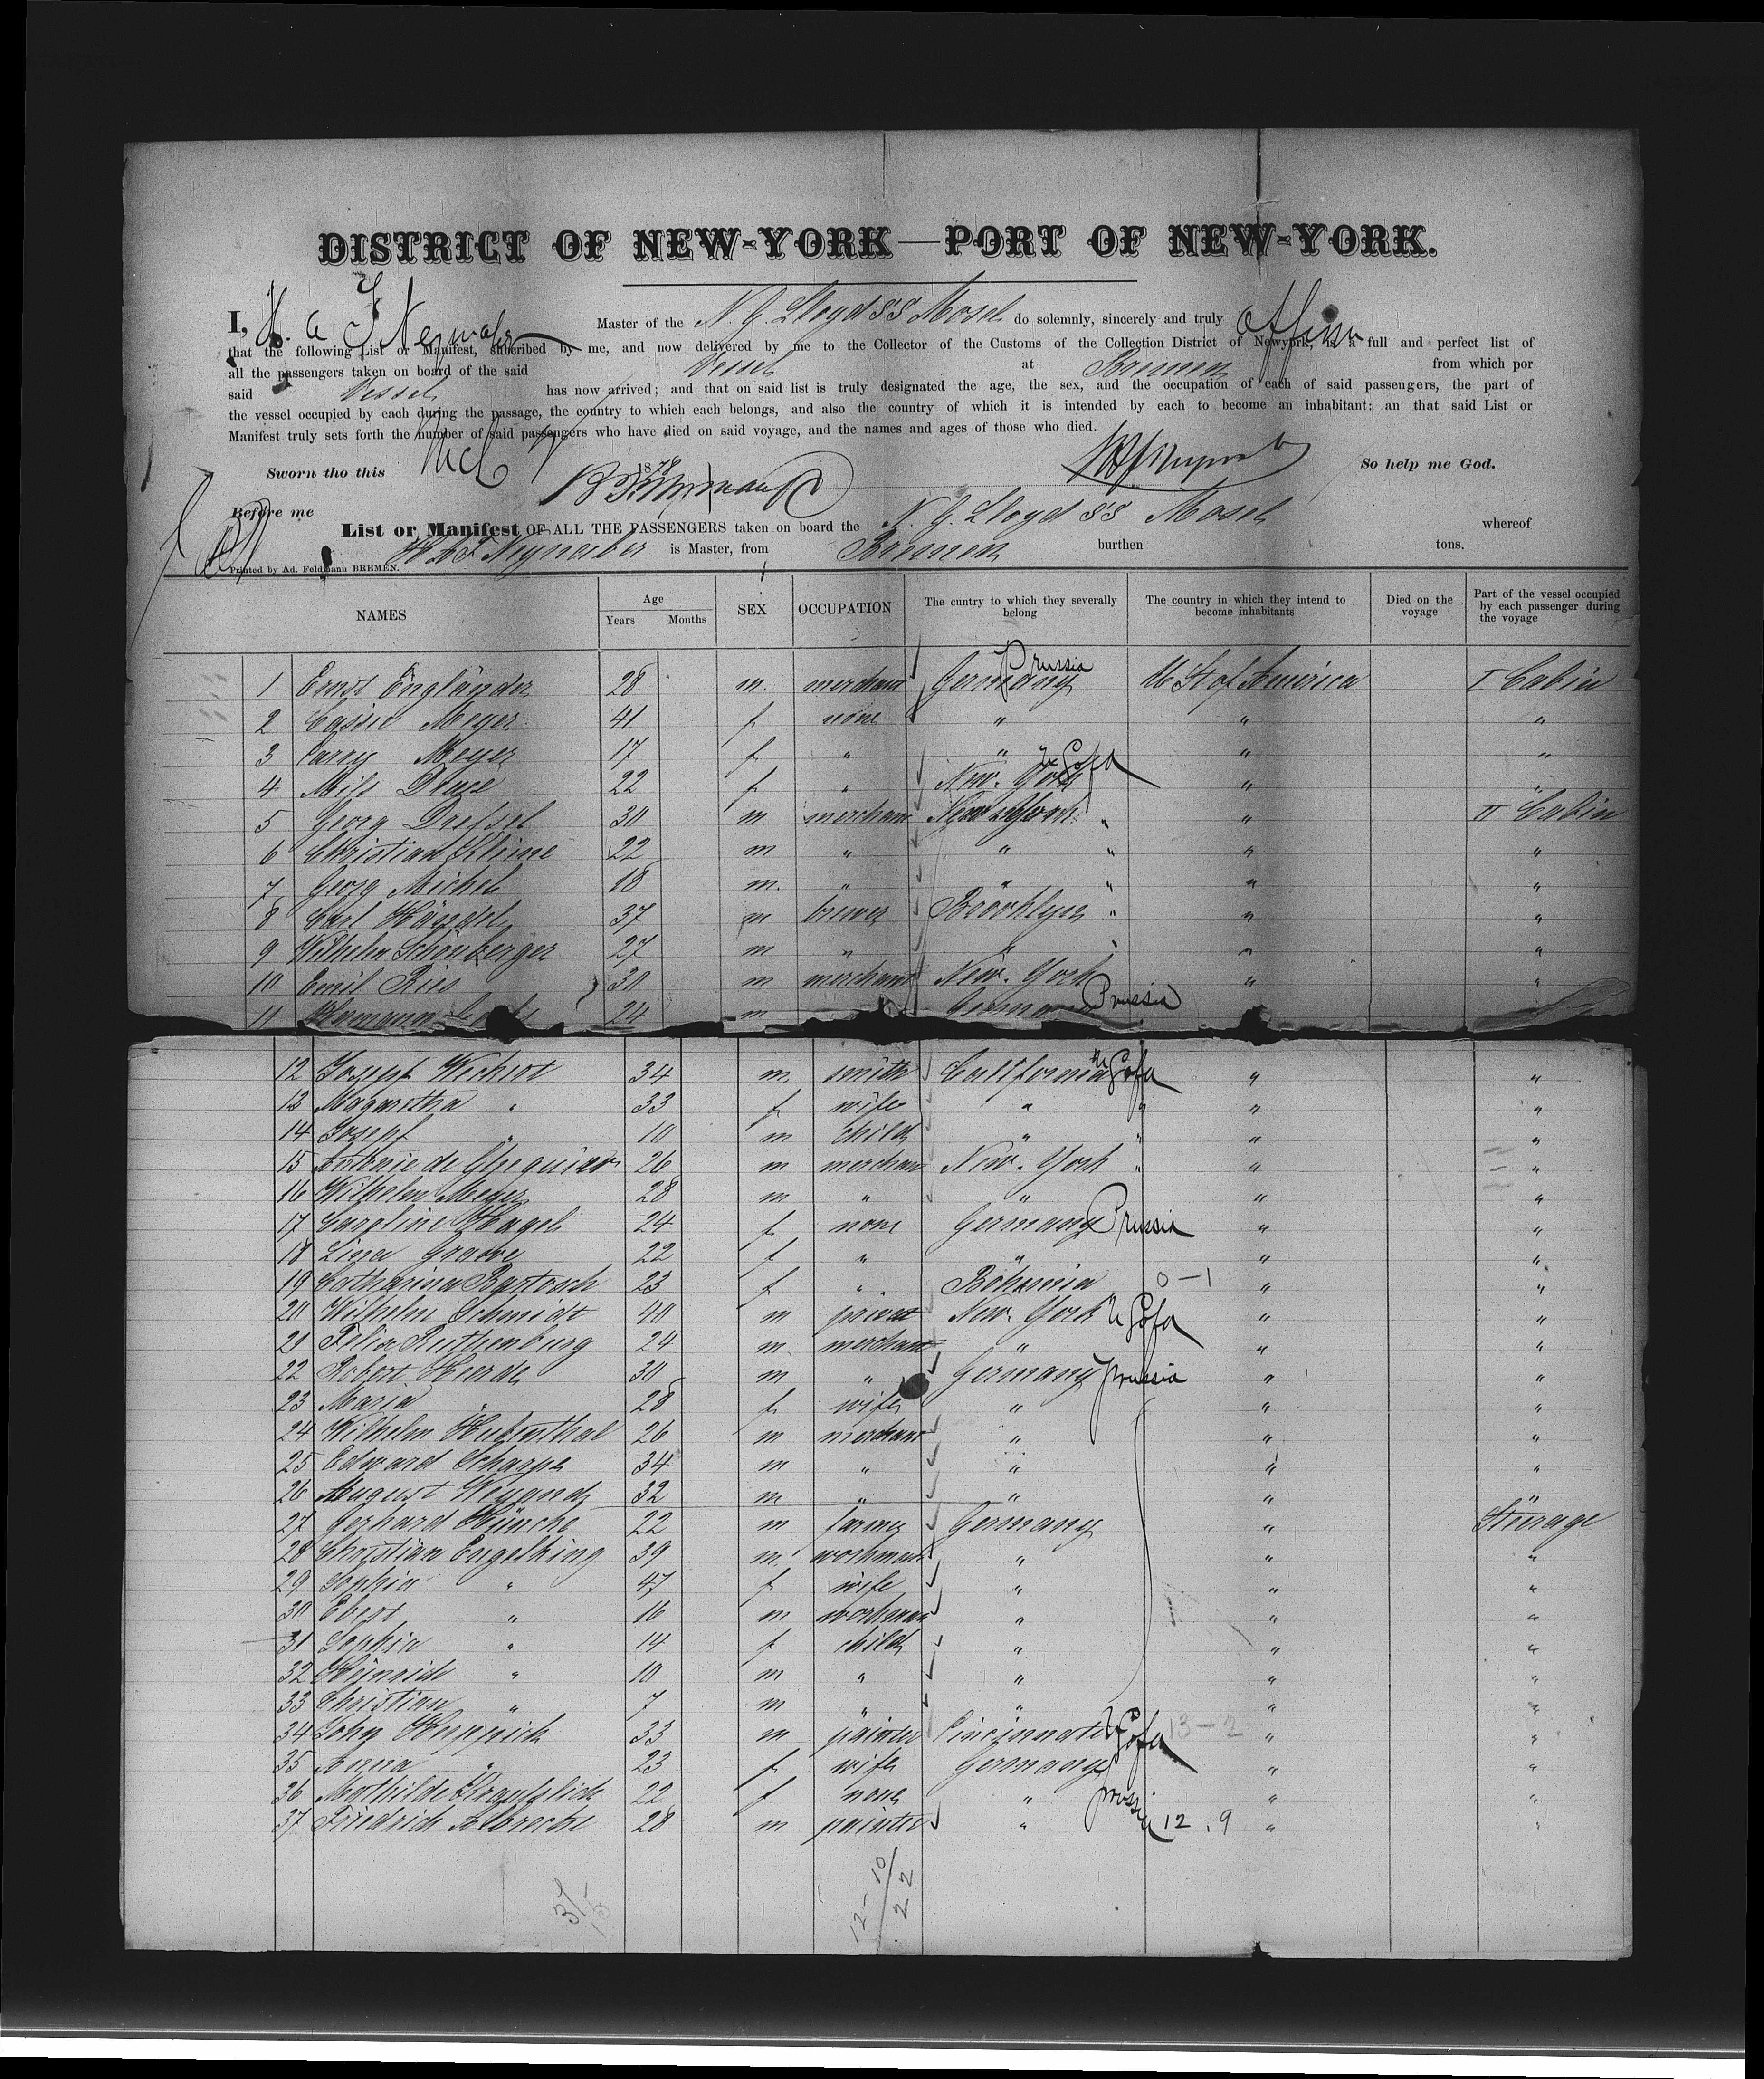 DISTRICT OF NEW-YORK—PORT OF NEW-YORK.
I, H. A. F. Neynaber Master of the N. G. Lloyd SS Mosel do solemnly, sincerely and truly affirm
that the following List or Manifest, subcribed by me, and now delivered by me to the Collector of the Customs of the Collection District of Newyork, is a full and perfect list of
all the passengers taken on board of the said Vessel at Bremen from which por
said Vessel has now arrived; and that on said list is truly designated the age, the sex, and the occupation of each of said passengers, the part of
the vessel occupied by each during the passage, the country to which each belongs, and also the country of which it is intended by each to become an inhabitant: an that said List or
Manifest truly sets forth the number of said passengers who have died on said voyage, and the names and ages of those who died.
Sworn tho this 1878 So help me God.
Before me
List or Manifest OF ALL THE PASSENGERS taken on board the N. G. Lloyd SS Mosel whereof
H. A. F. Neynaber is Master, from Bremen burthen tons.
Printed by Ad. Feldmann BREMEN.
NAMES Age Years Months SEX OCCUPATION The cuntry to which they severally belong The country in which they intend to become inhabitants Died on the voyage Part of the vessel occupied by each passenger during the voyage
1 Ernst Engländer 28 m. merchant Germany Prussia U St of America I Cabin
2 Meyer 41 f none " " "
3 Meyer 17 f " " " "
4 Miss 22 f " New-York U S of a " "
5 Georg Dressel 30 m merchant New York " " II Cabin
6 Christian Kleine 22 m " " " " "
7 Georg Michel 18 m. " " " " "
8 Carl Händel 37 m brewer Brooklyn " " "
9 Wilhelm Schönberger 27 m " " " " "
10 Emil Ries 30 m merchant New-York " "
11 Hermann 24 m Prussia
12 Josepf Wechert 34 m. smith California U S of a " "
13 Margaretha " 33 f wife " " " "
14 Josepf " 10 m child " " " "
15 Antonie de 26 m merchant New-York " " "
16 Wilhelm Meyer 28 m " " " "
17 Caroline Haagel 24 f none Germany Prussia " "
18 Lina Graeve 22 f " " " "
19 Catharina Bartosch 23 f " Bohemia 0-1 " "
20 Wilhelm Schmidt 40 m privat New-York U S of a " "
21 Felix Ruthenburg 24 m. merchant " " "
22 Robert Heerde 30 m " Germany prussia " "
23 Maria " 28 f wife " " "
24 Wilhelm Hubenthal 26 m merchant " " "
25 Edward Scharpe 34 m " " " "
26 August Weyand 32 m " " " "
27 Gerhard Hünche 22 m farmer Germany " Stürage
28 Christian Engelking 39 m. workman " " "
29 Sophia " 47 f wife " " "
30 Ebert " 16 m workman " " "
31 Sophia " 14 f child " " "
32 Heinrich " 10 m " " " "
33 Christian " 7 m " " " "
34 John Heppich 33 m painter Cincinnati U S of a 13-2 " "
35 Anna " 23 f wife Germany " "
36 Mathilde 22 f none " prussia " "
37 Friedrich Albrecht 28 m painter " 12.9 " "
37
15
12-10
22